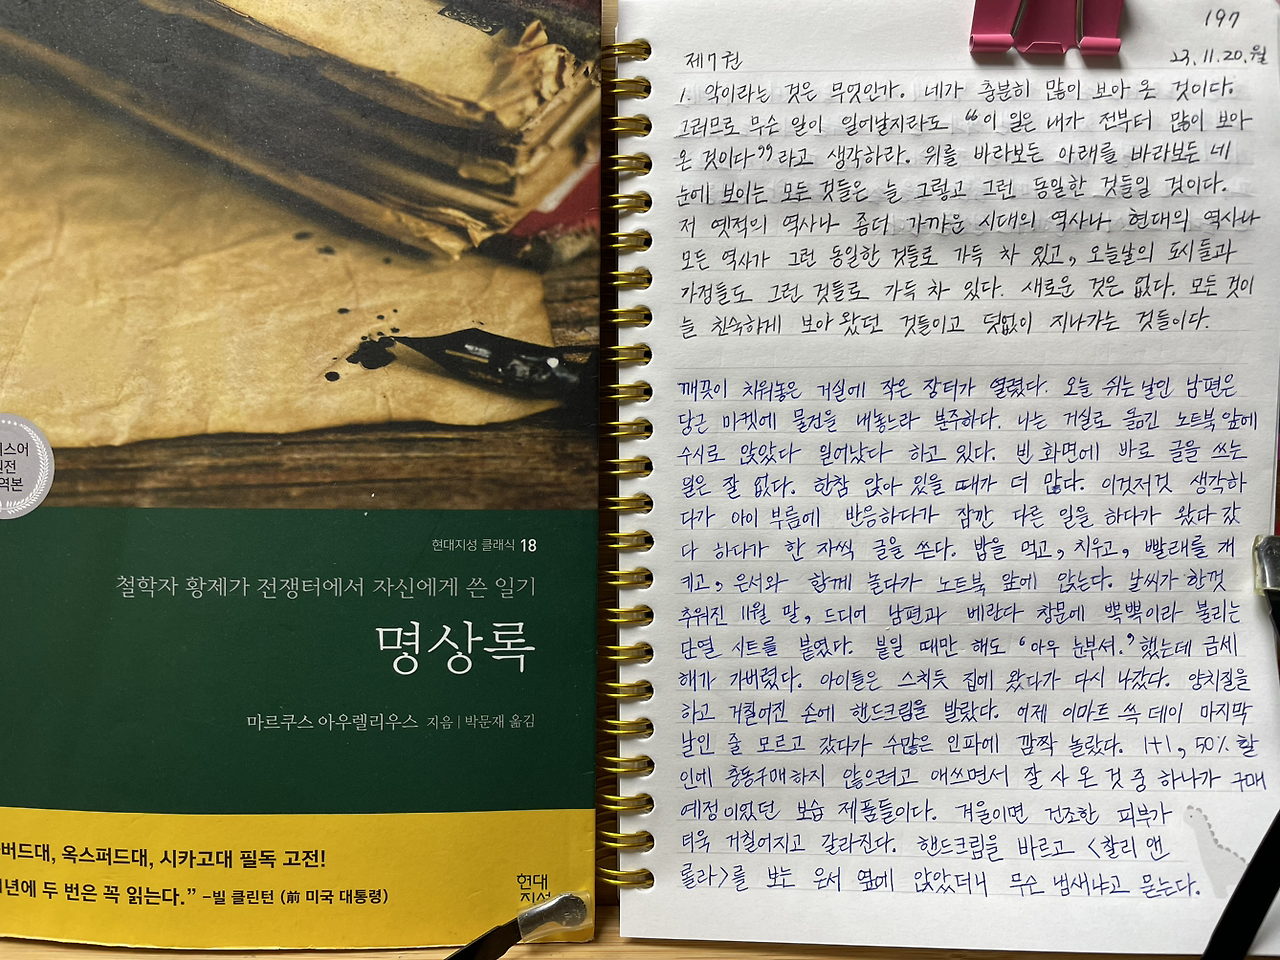 리스어
원전
역본
현대지성 클래식 18
철학자 황제가 전쟁터에서 자신에게 쓴 일기
명상록
마르쿠스 아우렐리우스 지음 | 박문재 옮김
버드대, 옥스퍼드대, 시카고대 필독 고전!
년에 두 번은 꼭 읽는다.” –빌 클린턴 (前 미국 대통령)
현대
지성
197
제7권
23.11.20.월
1. 악이라는 것은 무엇인가. 네가 충분히 많이 보아 온 것이다.
그러므로 무슨 일이 일어날지라도 “이 일은 내가 전부터 많이 보아
온 것이다”라고 생각하라. 위를 바라보든 아래를 바라보든 네
눈에 보이는 모든 것들은 늘 그렇고 그런 동일한 것들일 것이다.
저 옛적의 역사나 좀더 가까운 시대의 역사나 현대의 역사나
모든 역사가 그런 동일한 것들로 가득 차 있고, 오늘날의 도시들과
가정들도 그런 것들로 가득 차 있다. 새로운 것은 없다. 모든 것이
늘 친숙하게 보아 왔던 것들이고 덧없이 지나가는 것들이다.
깨끗이 치워놓은 거실에 작은 장터가 열렸다. 오늘 쉬는 날인 남편은
당근 마켓에 물건을 내놓느라 분주하다. 나는 거실로 옮긴 노트북 앞에
수시로 앉았다 일어났다 하고 있다. 빈 화면에 바로 글을 쓰는
일은 잘 없다. 한참 앉아 있을 때가 더 많다. 이것저것 생각하
다가 아이 부름에 반응하다가 잠깐 다른 일을 하다가 왔다 갔
다 하다가 한 자씩 글을 쓴다. 밥을 먹고, 치우고, 빨래를 개
키고, 은서와 함께 놀다가 노트북 앞에 앉는다. 날씨가 한껏
추워진 11월 말, 드디어 남편과 베란다 창문에 뽁뽁이라 불리는
단열 시트를 붙였다. 붙일 때만 해도 ‘아우 눈부셔.’ 했는데 금세
해가 가버렸다. 아이들은 스치듯 집에 왔다가 다시 나갔다. 양치질을
하고 거칠어진 손에 핸드크림을 발랐다. 어제 이마트 쓱 데이 마지막
날인 줄 모르고 갔다가 수많은 인파에 깜짝 놀랐다. 1+1, 50% 할
인에 충동구매하지 않으려고 애쓰면서 잘 사 온 것 중 하나가 구매
예정이었던 보습 제품들이다. 겨울이면 건조한 피부가
더욱 거칠어지고 갈라진다. 핸드크림을 바르고 <찰리 앤
롤라>를 보는 은서 옆에 앉았더니 무슨 냄새냐고 묻는다.